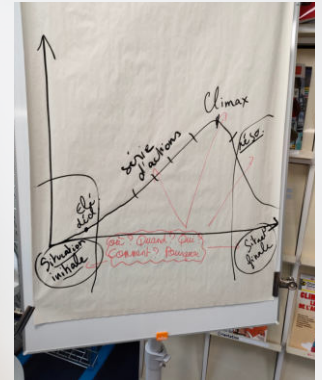 Climax
série
d'actions
Réso.
Elé
déc
Situation
initiale
où? Quand? Qui?
Comment? Pourquoi
Situat°
finale